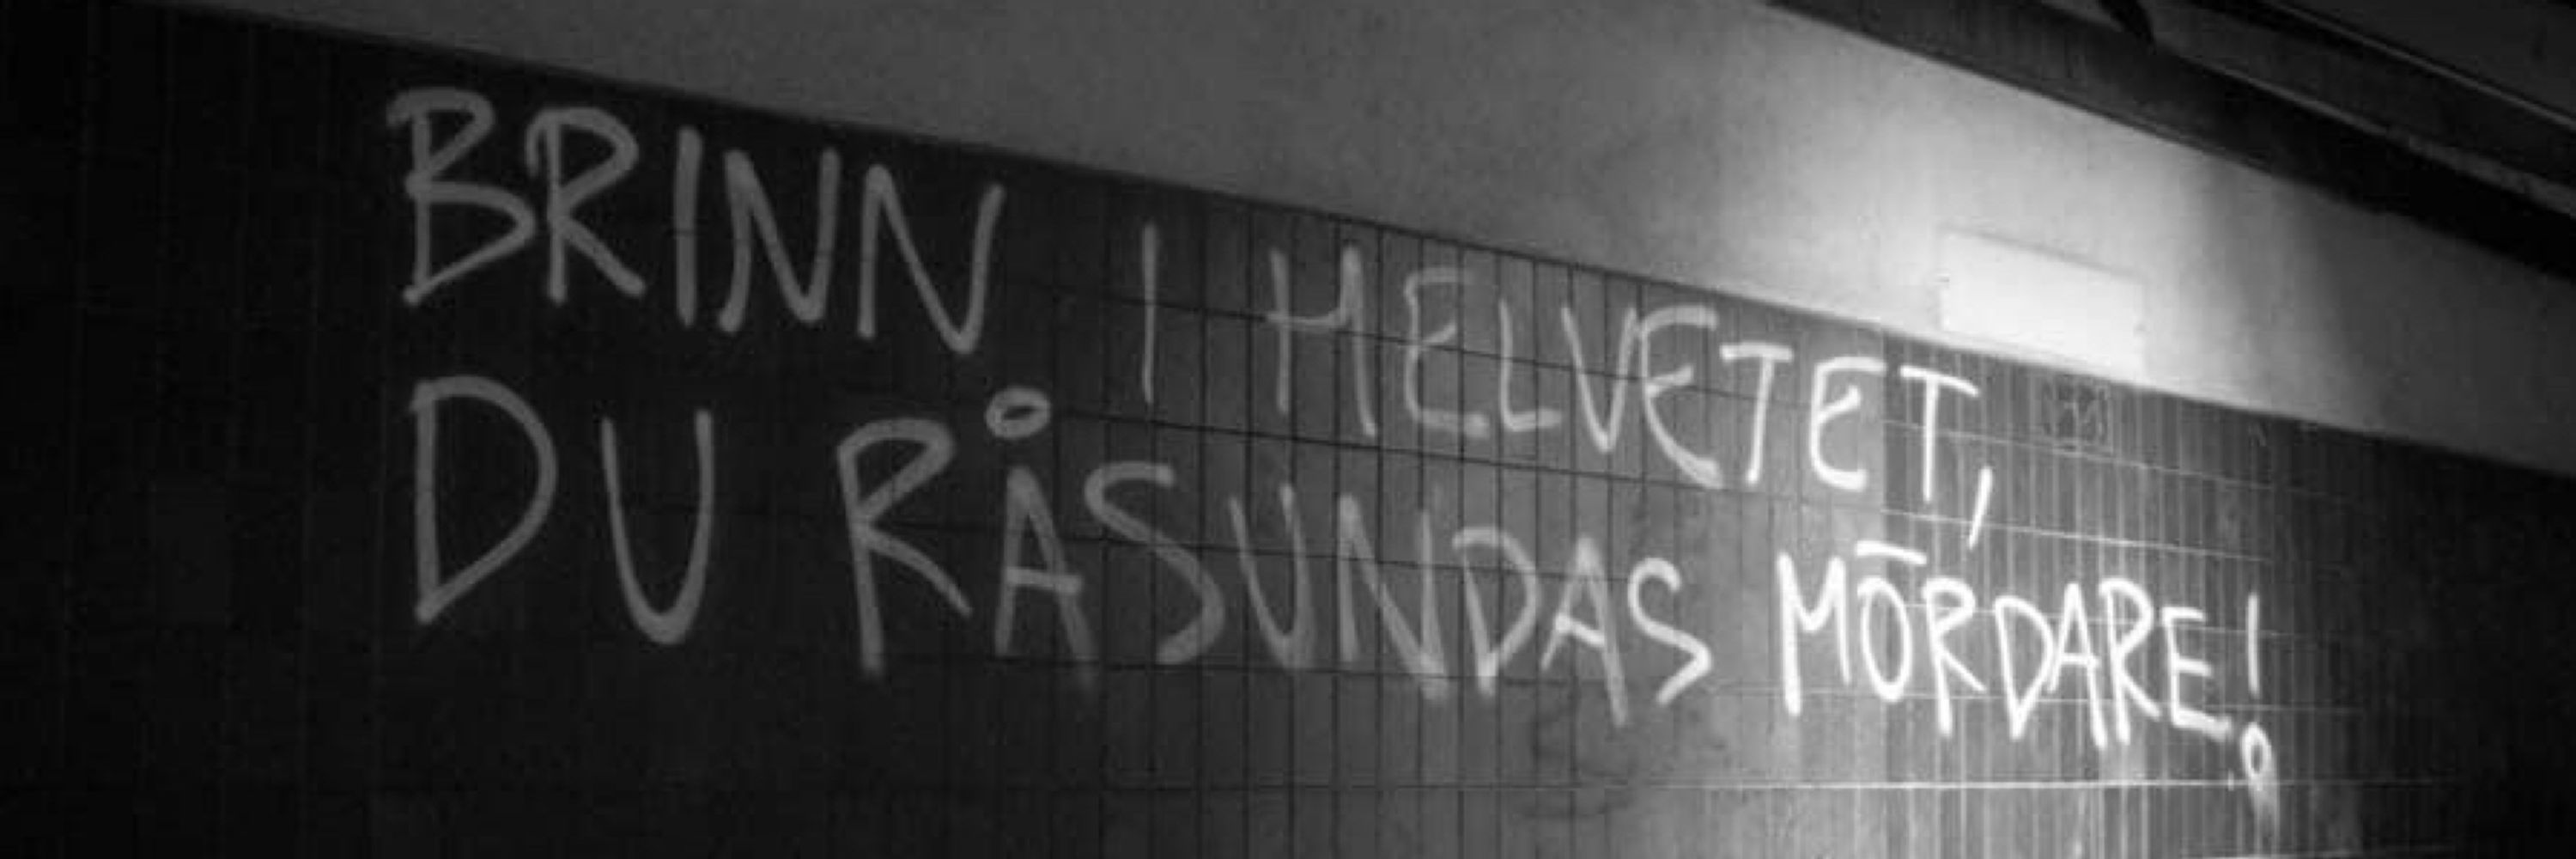 BRINN I HELVETET,
DU RÅSUNDAS MÖRDARE!